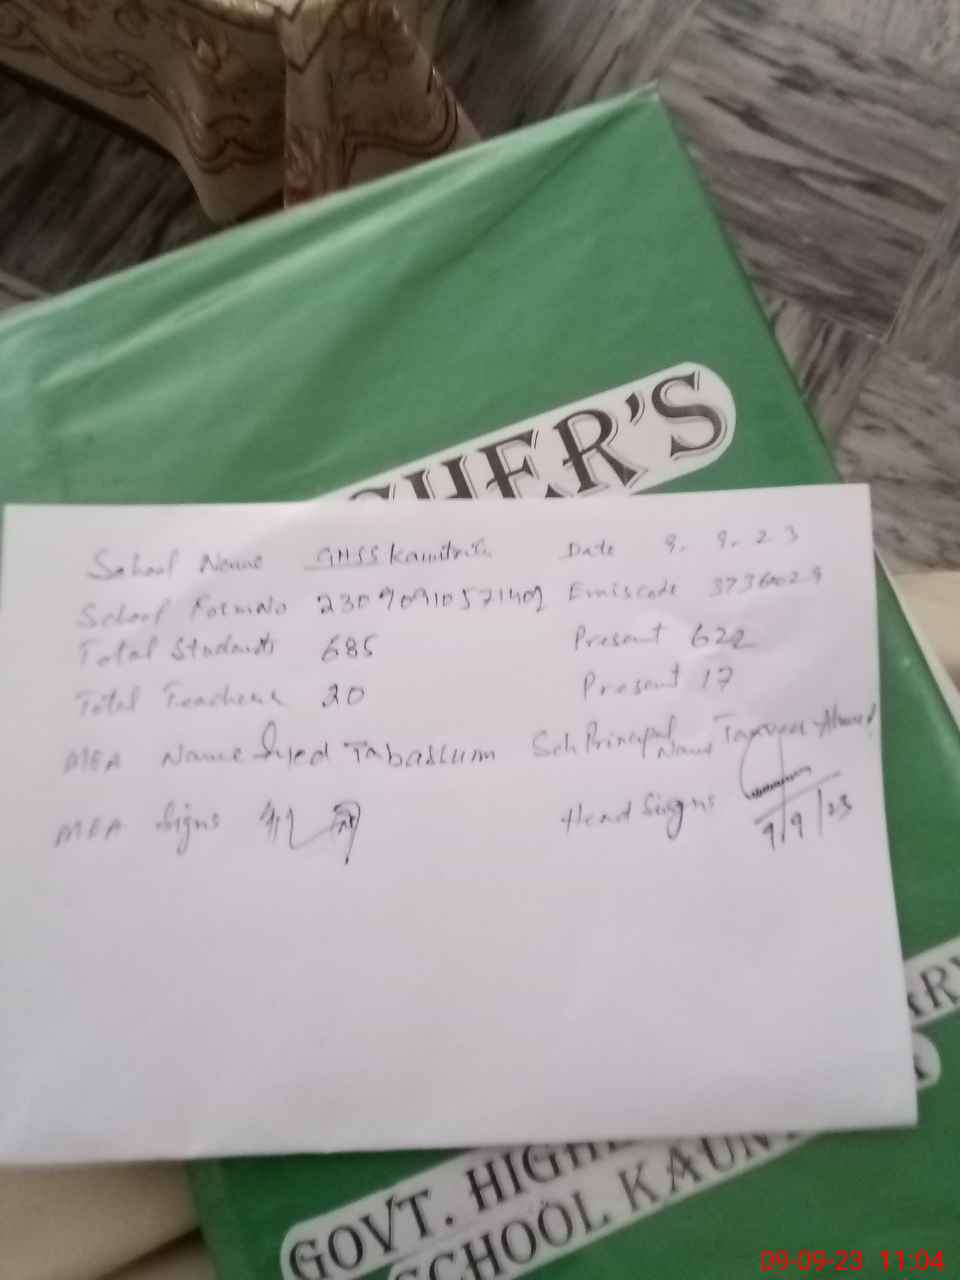 HER'S
School Name GHSS Date 9.9.23
School Formato Emiscode
Total Students 685 Present 622
Total Teachers 20 Present 17
MEA Name Syed Tabassum Sch Principal Name Ahmed
MEA Signs Head Signs
9/9/23
ARY
GOVT. HIGH
SCHOOL KAUN
09-09-23 11:04